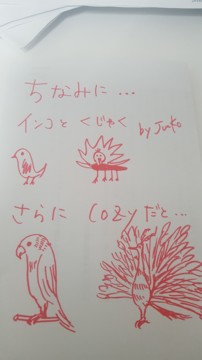 ちなみに…
インコと くじゃく
by Juko
さらに Cozyだと…